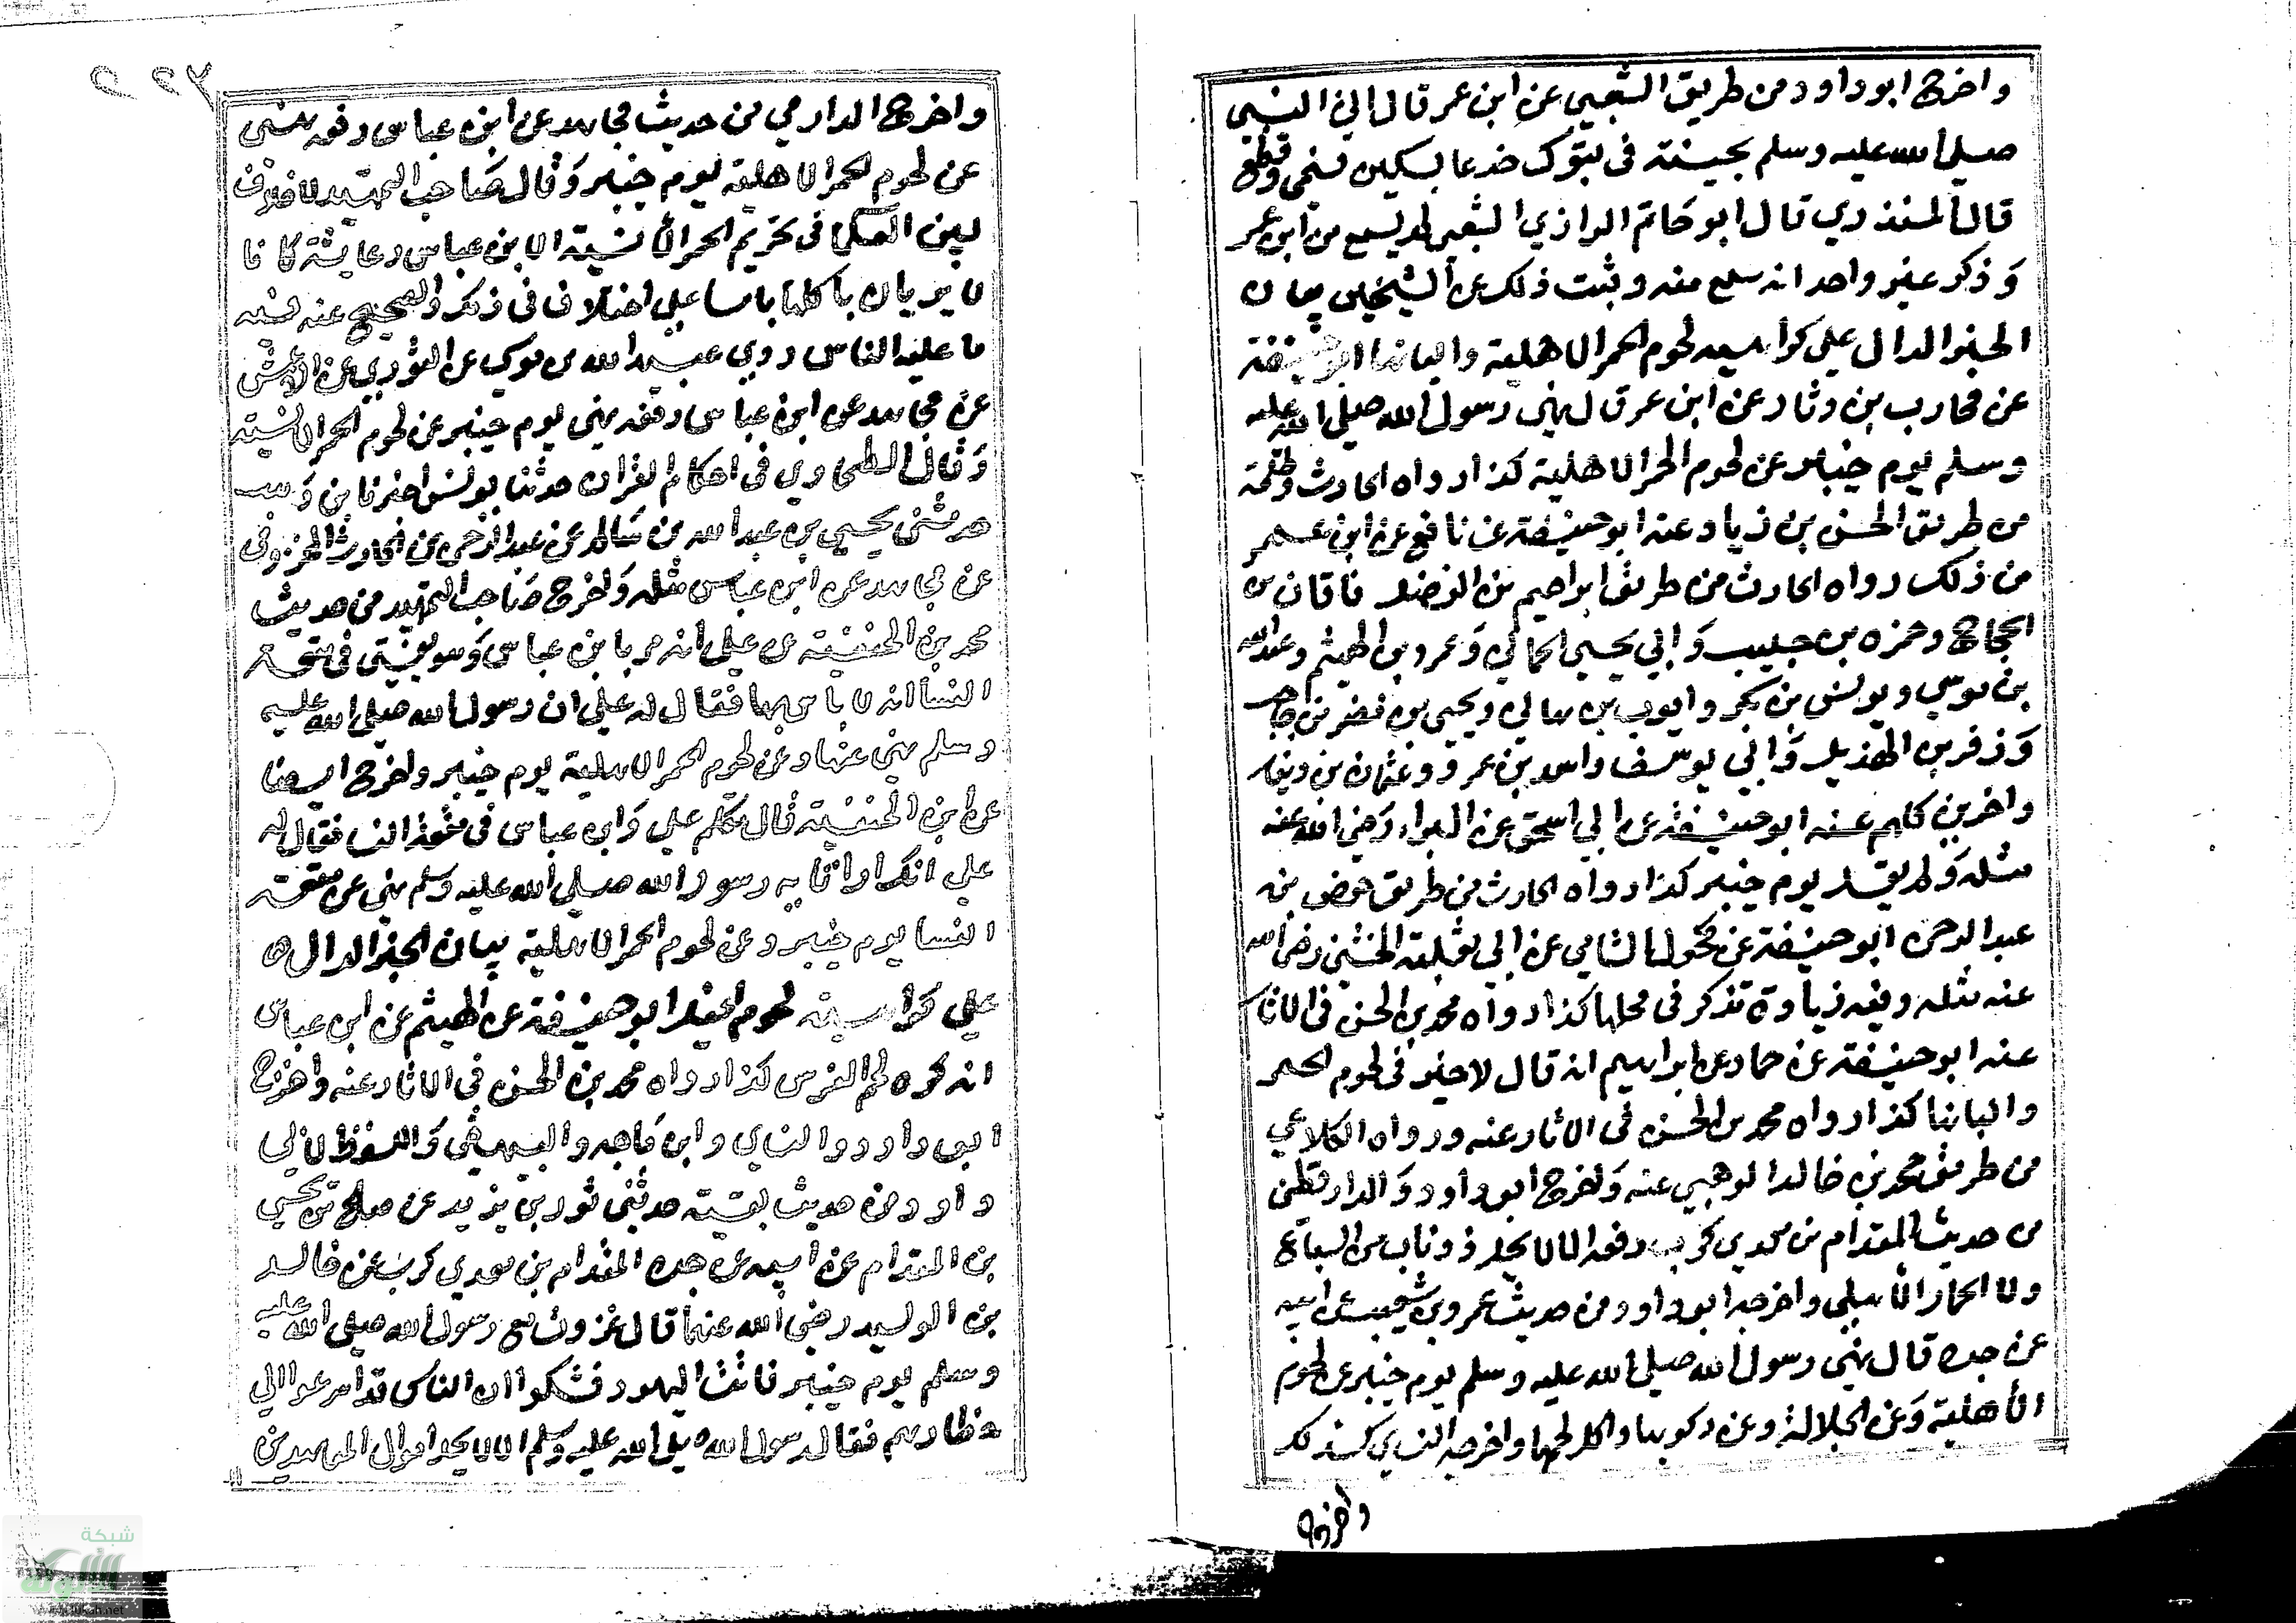 واخرج ابو داود من طريق الشعبي عن ابن عمر قال اتي النبي
صلي الله عليه وسلم بجبنة في تبوك فدعا بسكين فسمي وقطع
قال المنذري قال ابو حاتم الرازي الشعبي لم يسمع من ابن عمر
وذكر غير واحد انه سمع منه وثبت ذلك عن الشيخين بيان
الخبر الدال علي كراهية لحوم الحمر الاهلية والبانها ابو حنيفة
عن محارب بن دثار عن ابن عمر قال نهي رسول الله صلي الله عليه
وسلم يوم خيبر عن لحوم الحمر الاهلية كذا رواه الحارث وطلحة
من طريق الحسن بن زياد عنه ابو حنيفة عن نافع عن ابن عمر
من ذلك رواه الحارث من طريق ابراهيم بن الفضل فاقان بن
الحجاج وحمزه بن حبيب وابي يحيي الحماني وعمرو بن الهيثم وعبد الله
بن موسي ويونس بن بكير وايوب بن هاني ويحيي بن نصر بن حاجب
وزفر بن الهذيل وابي يوسف واسد بن عمرو وعثمان بن دينار
واخرين كلهم عنه ابو حنيفة عن ابي اسحق عن البراء رضي الله عنه
مثله ولم يقل يوم خيبر كذا رواه الحارث من طريق حفص بن
عبد الرحمن ابو حنيفة عن مكحول الشامي عن ابي ثعلبة الخشني رضي الله
عنه مثله وفيه زيادة تذكر في محلها كذا رواه محمد بن الحسن في الاثار
عنه ابو حنيفة عن حماد عن ابراهيم انه قال لا خير في لحوم الحمر
والبانها كذا رواه محمد بن الحسن في الاثار عنه ورواه الكلاعي
من طريق محمد بن خالد الوهبي عنه واخرج ابو داود والدارقطني
من حديث المقدام بن معدي كرب رفعه الا لا يحل ذو ناب من السباع
ولا الحمار الاهلي واخرجه ابو داود من حديث عمرو بن شعيب عن ابيه
عن جده قال نهي رسول الله صلي الله عليه وسلم يوم خيبر عن لحوم
الاهلية وعن الجلالة وعن ركوبها واكل لحمها واخرجه النساي كذلك
واخرج
واخرج الدارمي من حديث مجاهد عن ابن عباس رفعه نهي
عن لحوم الحمر الاهلية يوم خيبر وقال صاحب التمهيد لا خلاف
بين العلما في تحريم الحمر الانسية الا ابن عباس وعايشة كانا
لا يريان باكلها باسا علي اختلاف في ذلك والصحيح عنه فيه
ما عليه الناس روي عبيد الله بن موسي عن الثوري عن الاعمش
عن مجاهد عن ابن عباس رفعه نهي يوم خيبر عن لحوم الحمر الانسية
وقال الطحاوي في احكام القران حدثنا يونس اخبرنا بن وهب
حدثني يحيي بن عبد الله بن سالم عن عبد الرحمن بن الحارث المخزومي
عن مجاهد عن ابن عباس مثله واخرج صاحب التمهيد من حديث
محمد بن الحنفية عن علي انه مر بابن عباس وهو يفتي في متعة
النسا انه لا باس بها فقال له علي ان رسول الله صلي الله عليه
وسلم نهي عنها وعن لحوم الحمر الاهلية يوم خيبر واخرج ايضا
عن ابن الحنفية قال تكلم علي وابن عباس في متعة النسا فقال له
علي انك امرا تايه رسول الله صلي الله عليه وسلم نهي عن متعة
النسا يوم خيبر وعن لحوم الحمر الاهلية بيان الخبر الدال
علي كراهية لحوم الخيل ابو حنيفة عن الهيثم عن ابن عباس
انه كره لحم الفرس كذا رواه محمد بن الحسن في الاثار عنه واخرج
ابو داود والنساي وابن ماجه والبيهقي واللفظ لابي
داود من حديث بقية حدثني ثور بن يزيد عن صالح بن يحيي
بن المقدام عن ابيه عن جده المقدام بن معدي كرب عن خالد
بن الوليد رضي الله عنهما قال غزوت مع رسول الله صلي الله عليه
وسلم يوم خيبر فاتت اليهود فشكوا ان الناس قد اسرعوا الي
حظايرهم فقال رسول الله صلي الله عليه وسلم الا لا يحل اموال المعاهدين